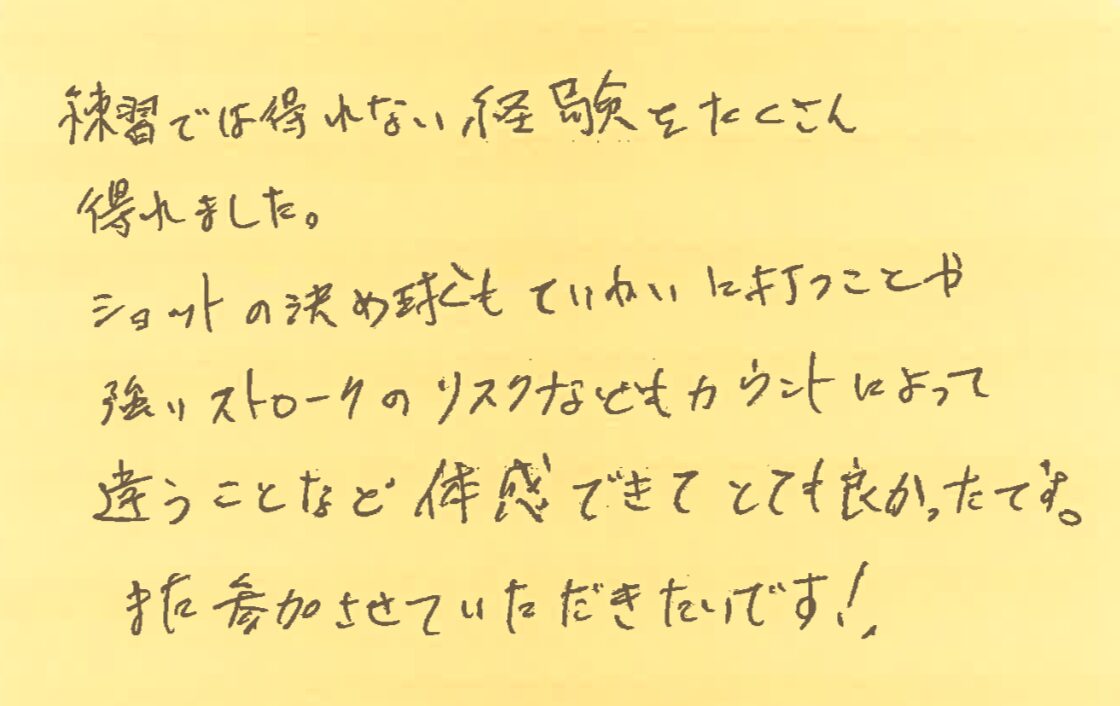 練習では得れない経験をたくさん
得れました。
ショットの決め球もていねいに打つことや
強いストロークのリスクなどもカウントによって
違うことなど体感できてとても良かったです。
また参加させていただきたいです!